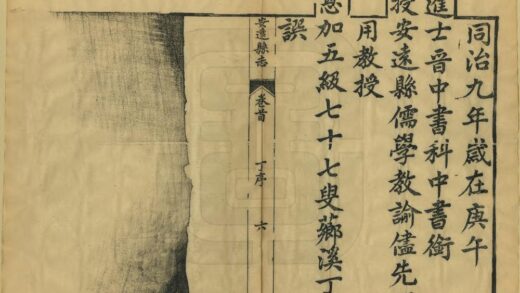 同治九年歲在庚午
進士晉中書科中書銜
授安遠縣儒學教諭儘先
用教授
恩加五級七十七叟薌溪丁
譔
安遠縣志
卷首
丁序
六